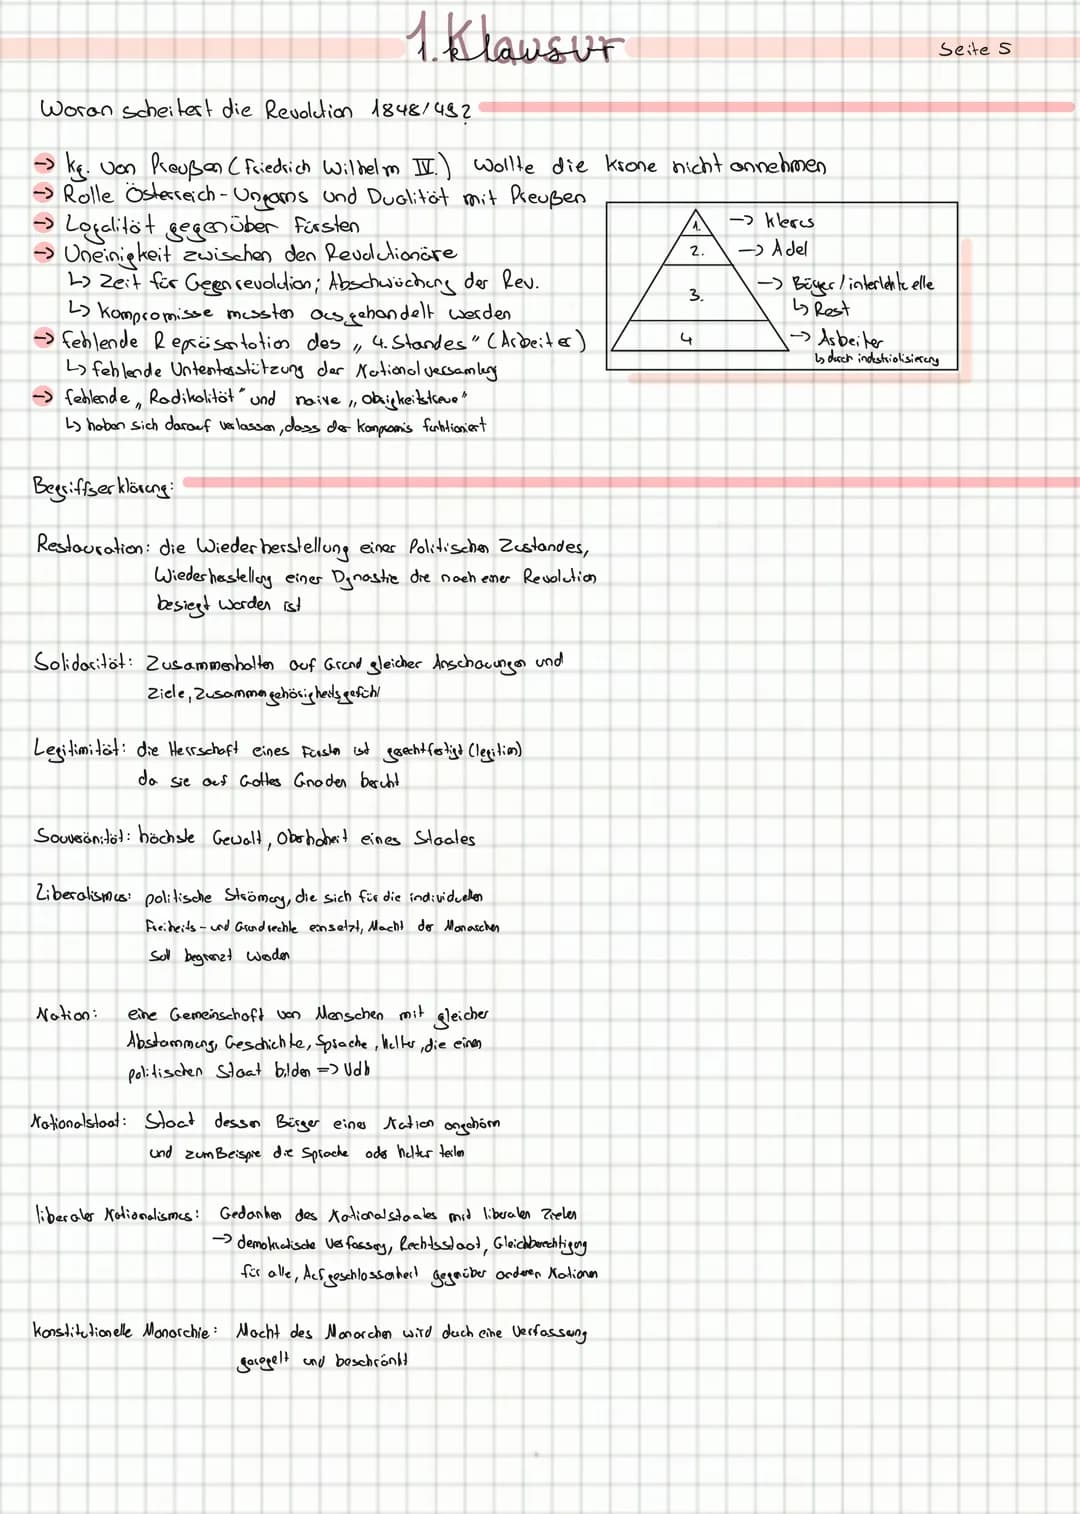 1. Klausur
1. Klausur
Seite 5
Woran scheitert die Revolution 1848/49?
→ kg. von Preußen (Friedrich Wilhelm IV.) wollte die Krone nicht annehmen
→ Rolle Österreich-Ungarns und Dualität mit Preußen
→ Loyalität gegenüber Fürsten
→ Uneinigkeit zwischen den Revolutionäre
↳ Zeit für Gegenrevolution; Abschwächung der Rev.
↳ Kompromisse mussten ausgehandelt werden
→ fehlende Repräsentation des „4. Standes" (Arbeiter)
↳ fehlende Unterstützung der Nationalversamlung
→ fehlende „Radikalität" und naive „obrigkeitstreue"
↳ haben sich darauf verlassen, dass der kompromis funktioniert
1. → klerus
2. → Adel
3. → Bürger/interlektuelle
↳ Rest
4 → Arbeiter
↳ durch industrialisierung
Begriffserklärung:
Restauration: die Wiederherstellung eines Politischen Zustandes,
Wiederherstellung einer Dynastie die nach einer Revolution
besiegt worden ist
Solidarität: Zusammenhalten auf Grund gleicher Anschauungen und
Ziele, Zusammengehörigkeitsgefühl
Legitimität: die Herrschaft eines Fürsten ist gerechtfertigt (legitim)
da sie auf Gottes Gnaden beruht
Souveränität: höchste Gewalt, Oberhoheit eines Staates
Liberalismus: politische Strömung, die sich für die individuellen
Freiheits- und Grundrechte einsetzt, Macht der Monarchen
soll begrenzt werden
Nation: eine Gemeinschaft von Menschen mit gleicher
Abstammung, Geschichte, Sprache, Kultur, die einen
politischen Staat bilden => Udb
Nationalstaat: Staat dessen Bürger einer Nation angehörn
und zum Beispie die Sprache oder kultur teilen
liberaler Nationalismus: Gedanken des Nationalstaates mit liberalen Zielen
→ demokratische Verfassung, Rechtsstaat, Gleichberechtigung
für alle, Aufgeschlossenheit gegenüber anderen Nationen
Konstitutionelle Monarchie: Macht des Monarchen wird duch eine Verfassung
geregelt und beschränkt